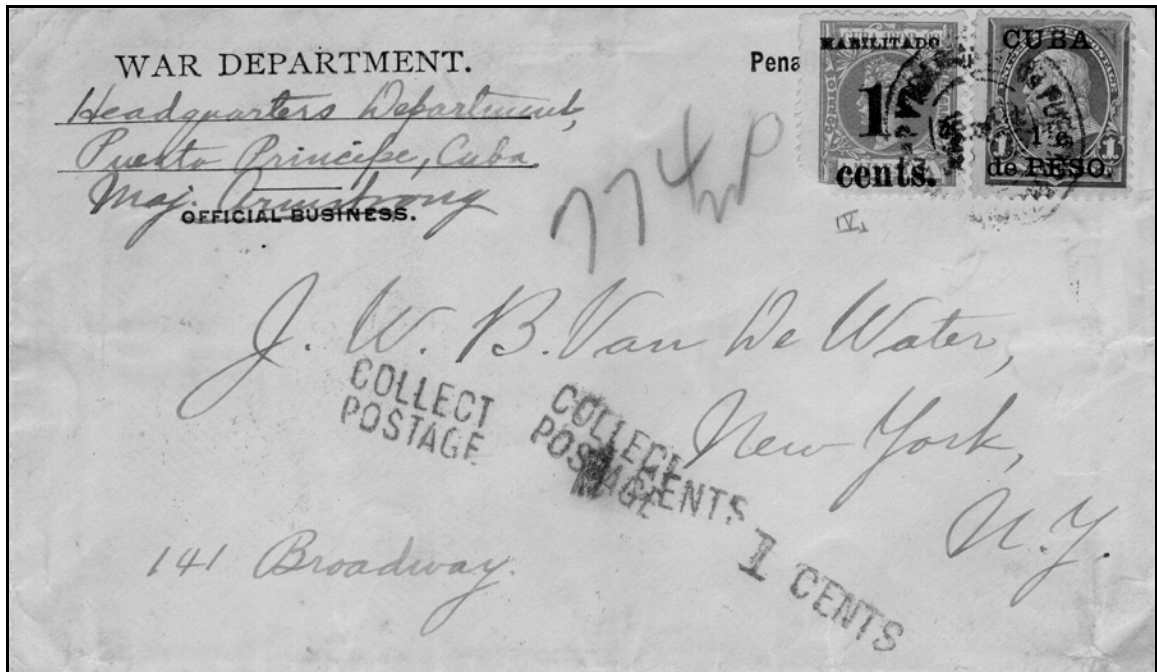 WAR DEPARTMENT.
Headquarters Department,
Puerto Principe, Cuba
Maj. Armstrong
OFFICIAL BUSINESS.
Pena
HABILITADO
1
cents.
CUBA
1 c.
1 1
de PESO.
774
IV,
J. W. B. Van De Water,
New York,
N.Y.
141 Broadway.
COLLECT
POSTAGE
COLLECT
POSTAGE
CENTS
1 CENTS